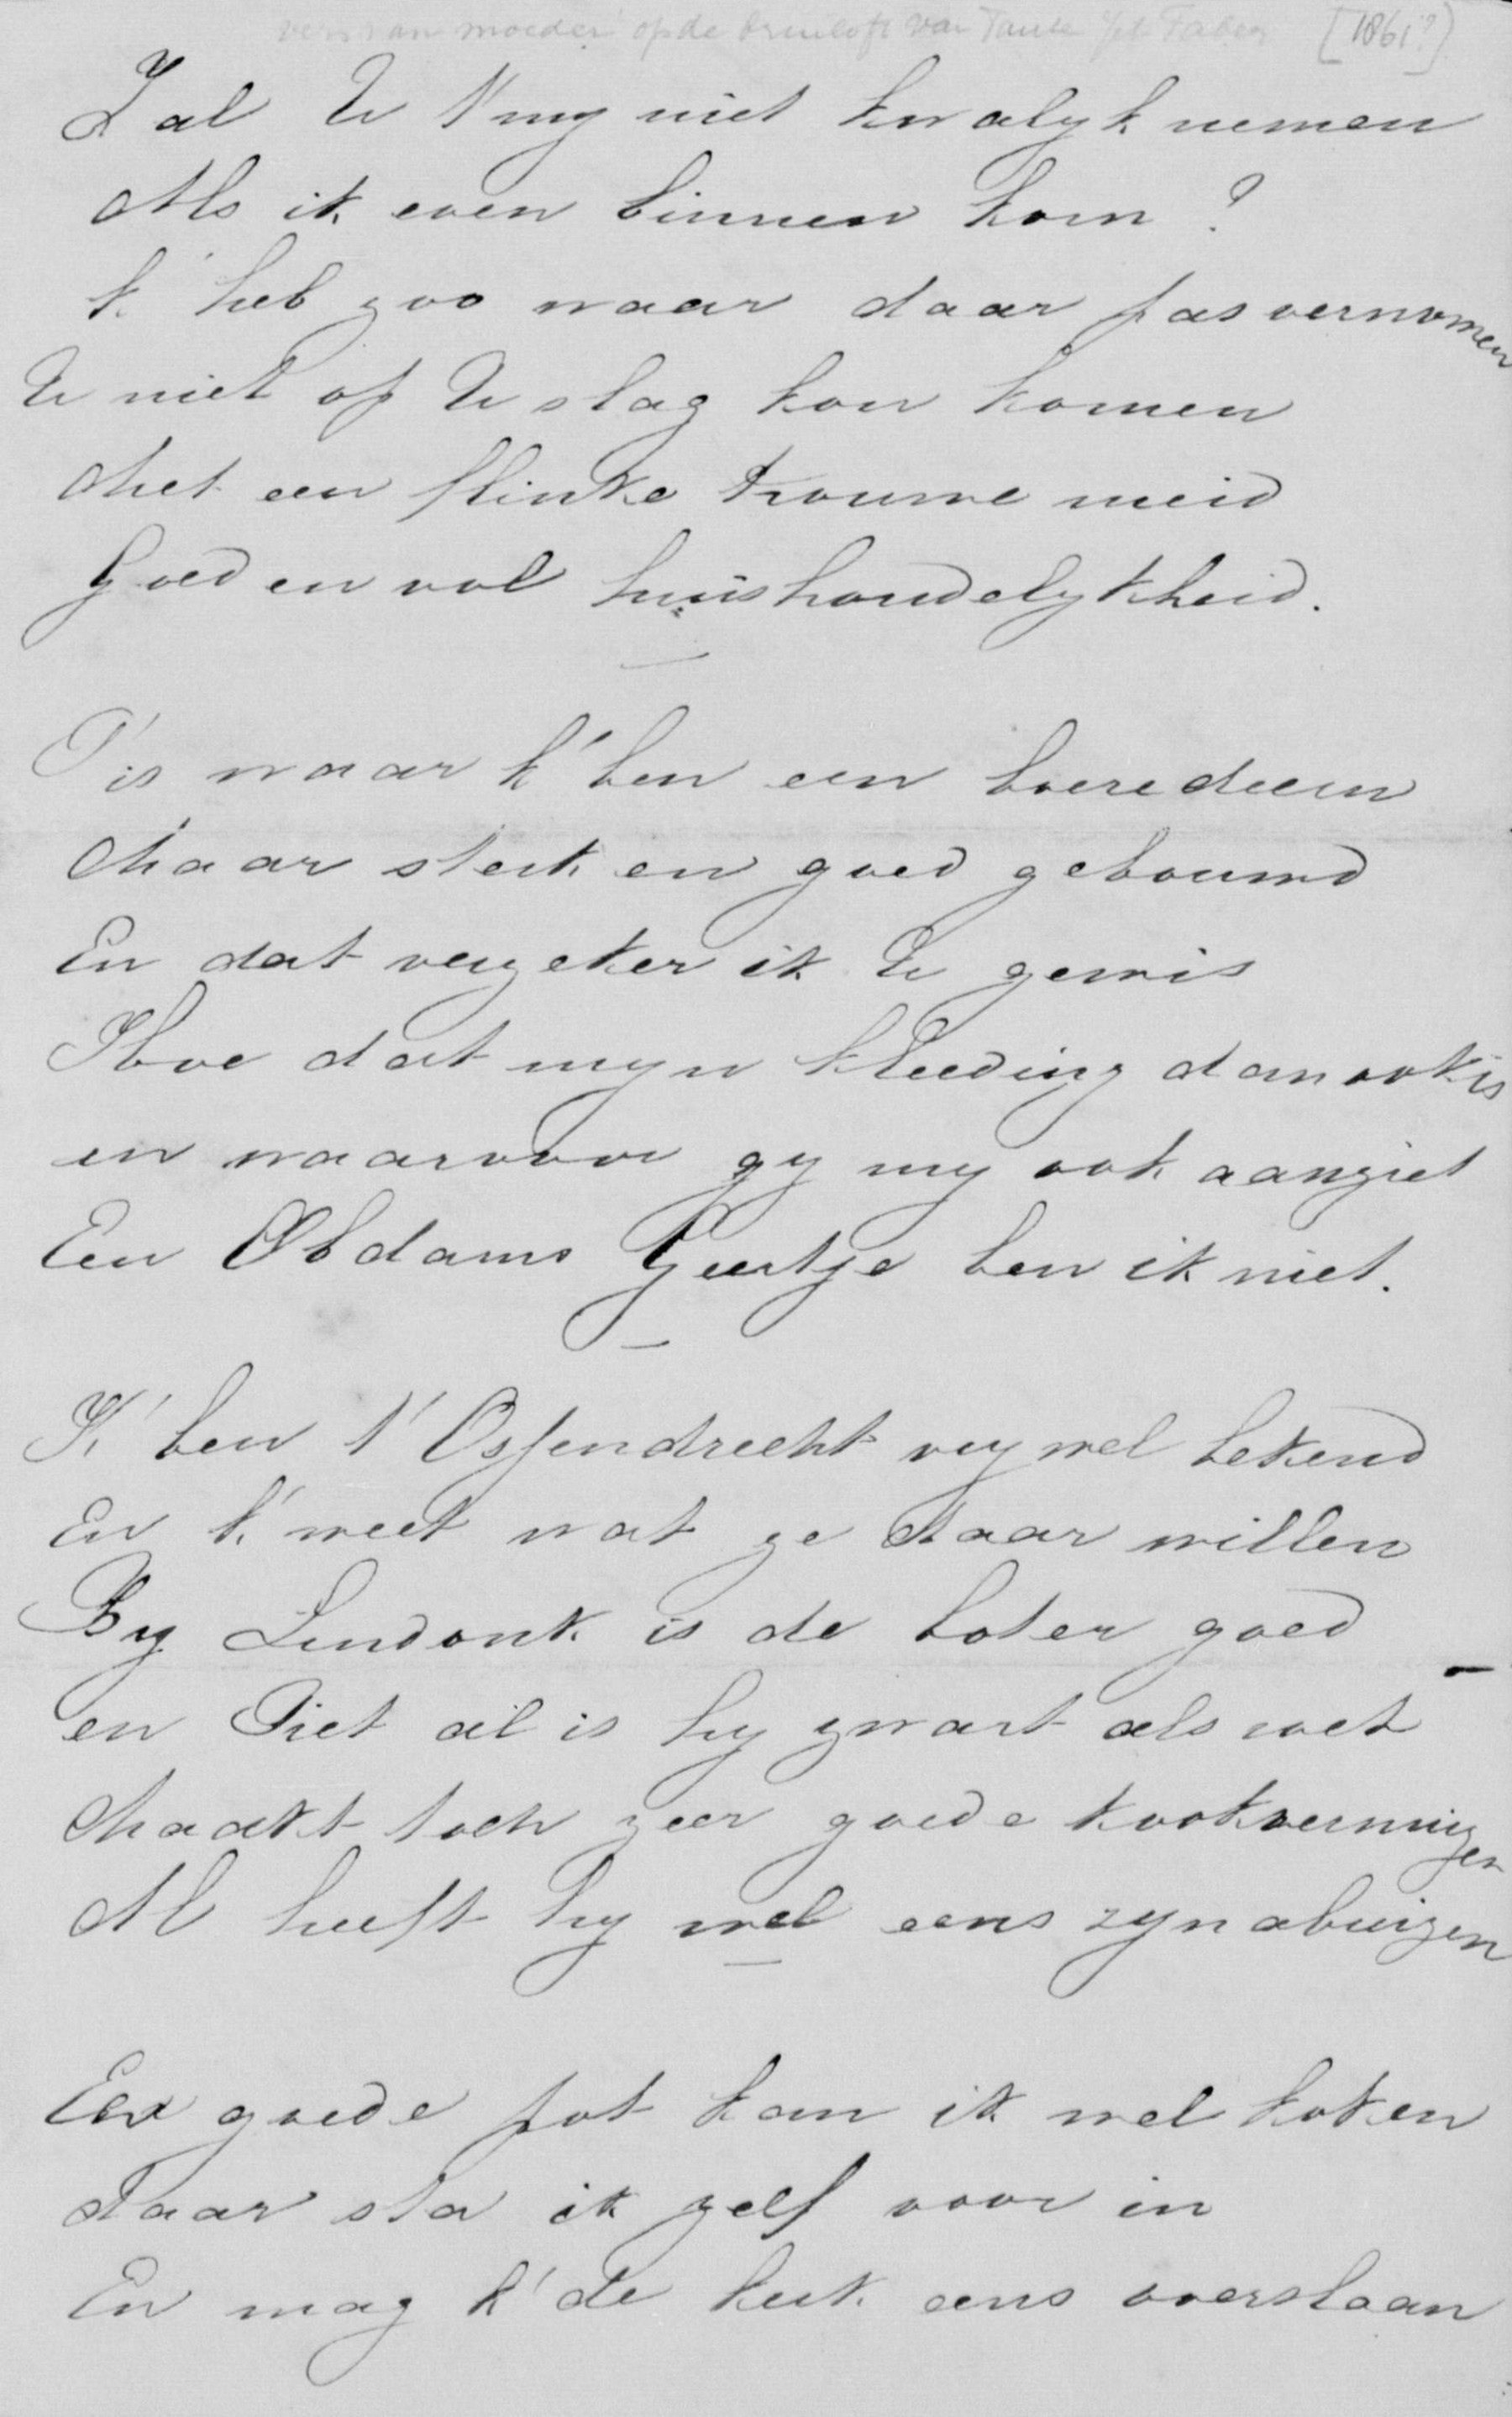 vers van moeder op de bruiloft van Tante Faber [1861?]
Zal U t'my niet kwalyk nemen
Als ik even binnen kom?
k' heb zoo waar daar pas vernomen
U niet op U slag kon komen
Met een flinke trouwe meid
Goed en vol huishoudelykheid.
T'is waar k' ben een boeredeern
Maar sterk en goed gebouwd
En dat verzeker ik U gewis
Hoe dat myn kleeding dan ook is
en waarvoor gy my ook aanziet
Een Obdams Geertje ben ik niet.
K' ben t' Ossendrecht vry wel bekend
En k' weet wat ze daar willen
By Lindonk is de boter goed
en Piet al is hy zwart als roet
Maakt toch zeer goede kookvernuizen
Al heeft hy wel eens zyn abuizen
Een goede pot kan ik wel koken
Daar sta ik zelf voor in
En mag k' de kerk eens overslaan